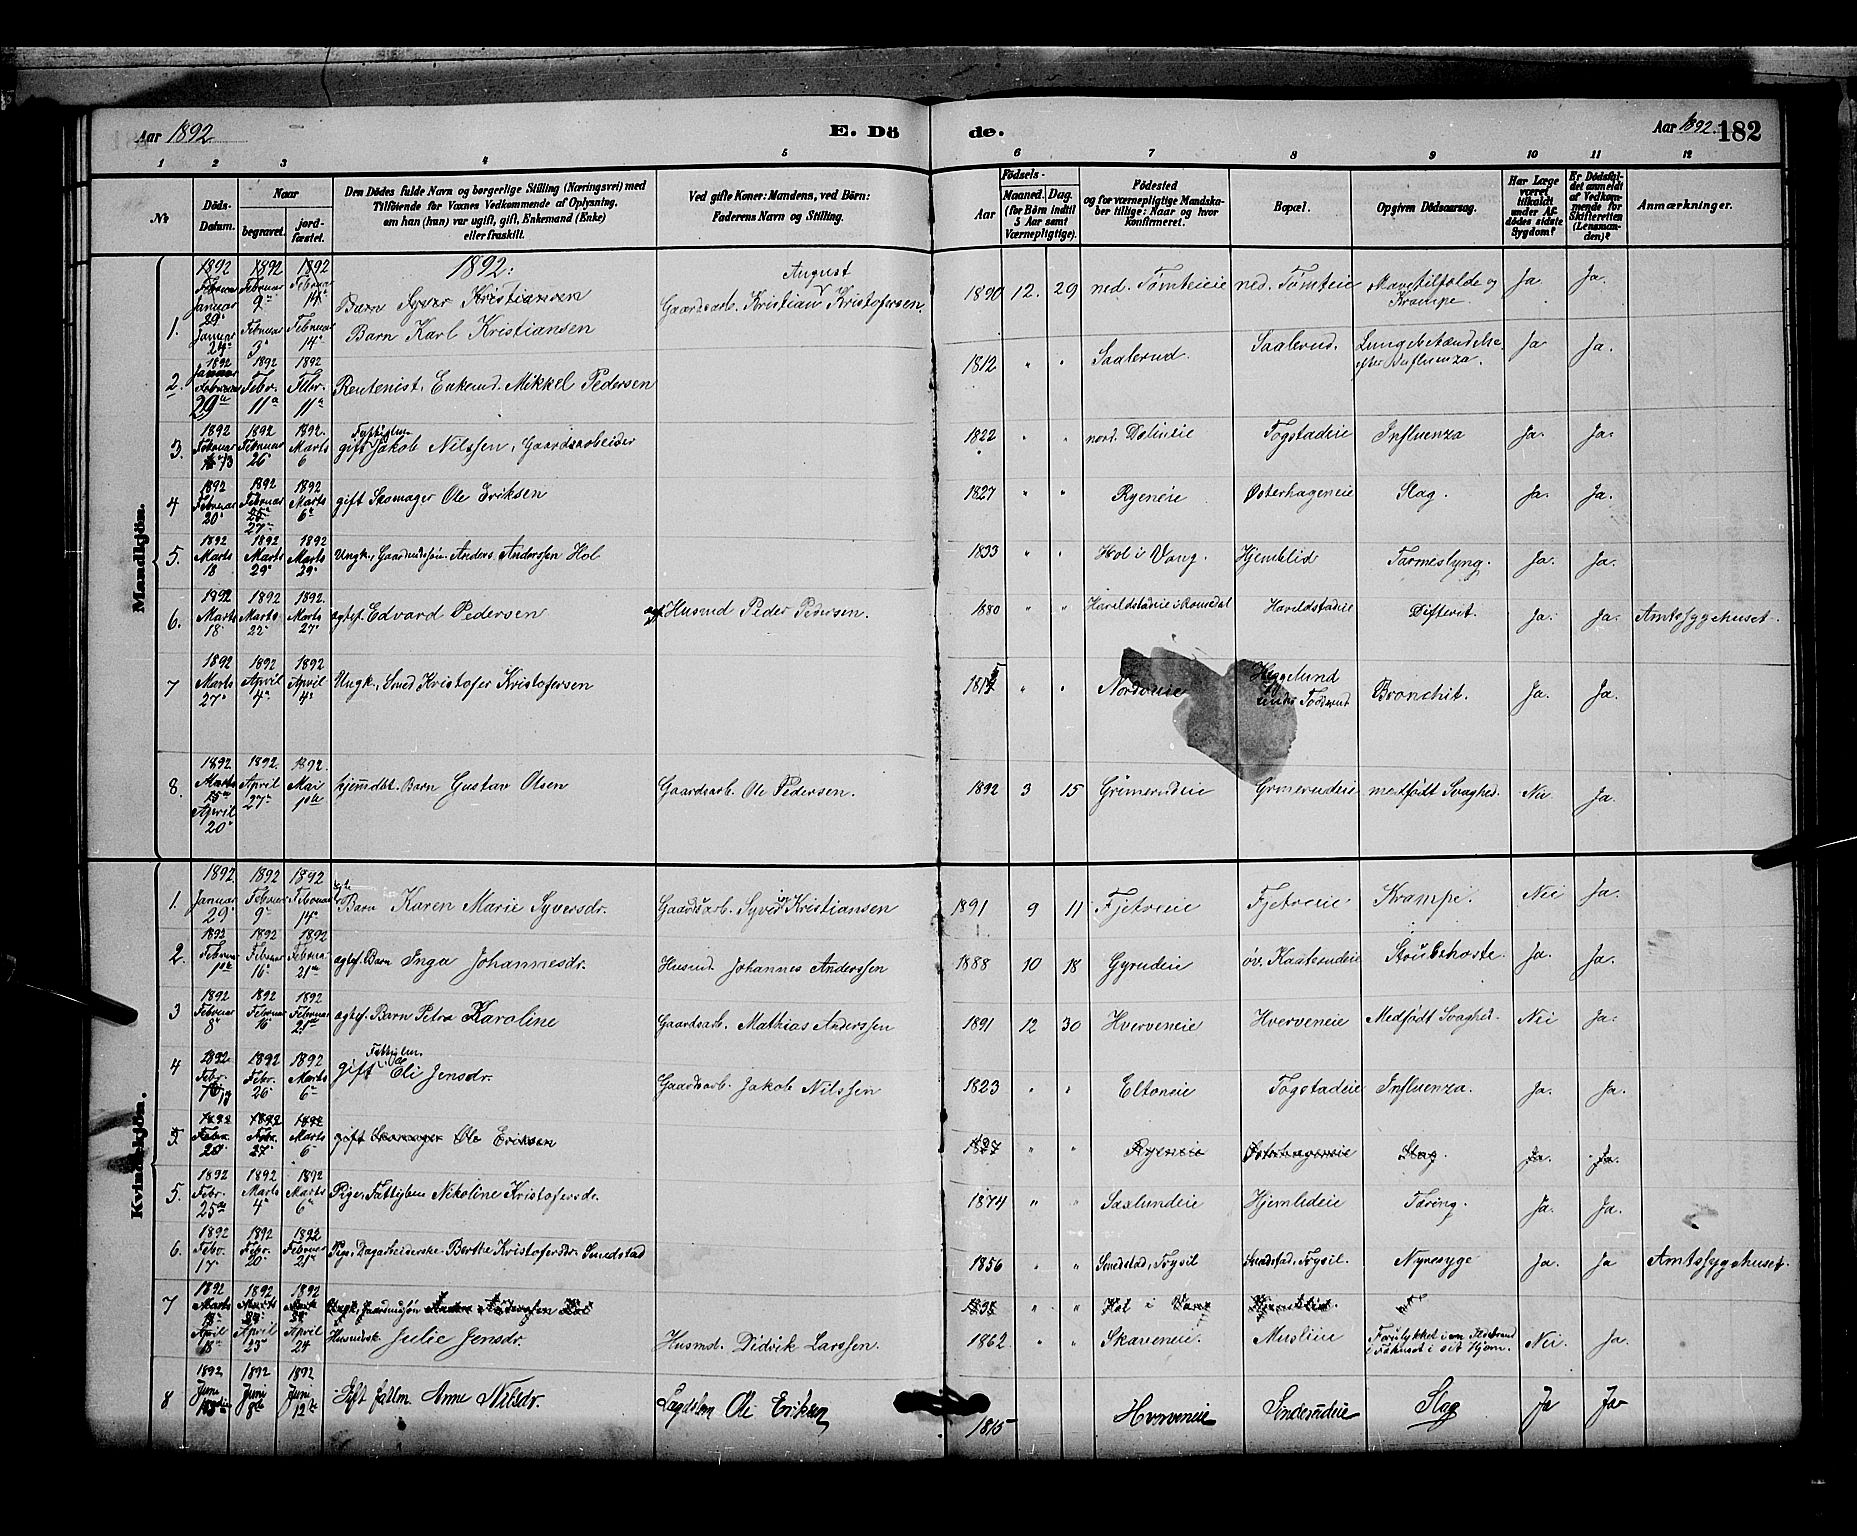 Aar 1892. E. Dö de. Aar 1892. 182
1 2 3 4 5 6 7 8 9 10 11 12
№ Döds-Datum. Naar begravet. jordfæstet. Den Dödes fulde Navn og borgerlige Stilling (Næringsvei) med Tilföiende för Voxnes Vedkommende af Oplysning, om han (hun) var ugift, gift, Enkemand (Enke) eller fraskilt. Ved gifte Koner: Mandens, ved Börn: Faderens Navn og Stilling. Födsels- Aar Maaned. Dag. (for Börn indtil 5 Aar samt Værnepligtige). Födested og for værnepligtige Mandskaber tillige: Naar og hvor konfirmeret. Bopæl. Opgiven Dödsaarsag. Har Læge været tilkaldt under Afdödes sidste Sygdom? Er Dödsfaldet anmeldt af Vedkommende for Skifteretten (Lensmanden)? Anmærkninger.
Mandkjön.
1892:
1. 1892 Januar 29 1892 Februar 9 1892 Februar 14 Barn Syver Kristiansen Gaardsarb. Kristian August Kristofersen. 1890 12. 29 ned. Tomteieie ned. Tømteie Mavetilfælde og Krampe. Ja. Ja.
Januar 24 Februar 3 Februar 14 Barn Karl Kristiansen
2. 1892 Januar Februar 29 1892 Febr. 11 1892 Febr. 11 Rentenist, Enkemd. Mikkel Pedersen 1812 " " Saalerud. Saalerud. Lungebetændelse efter Influenza. Ja Ja.
3. 1892 Februar 13 1892 Februar 26 1892. Marts 6 gift Fattiglm. Jakob Nilssen, Gaardsarbeider 1822 " " nord. Delineie Togstadeie Influenza Ja. Ja.
4 1892 Februar 20 1892 Februar 27 1892 Marts 6 gift Skomager Ole Eriksen 1827 " " Ryeneie Østerhageneie Slag. Ja. Ja.
5. 1892 Marts 18 1892 Marts 29 1892 Marts 29 Ungk., Gaardmdssøn. Anders Anderssen Hol 1833 " " Hol i Vang. Hjemblid Tarmeslyng. Ja. Ja.
6. 1892 Marts 18 1892 Marts 22 1892. Marts 27 ægtef. Edvard Pedersen Husmd Peder Pedersen. 1880 " " Haraldstadeie i Romedal Haraldstadeie Difterit. Ja. Ja. Amtssygehuset.
7 1892 Marts 27 1892 April 4 1892 April 4 Ungk., Smed Kristofer Kristofersen " " Nordveie Heggelund under Tødderud Bronchit. Ja. Ja.
8. 1892. Marts 15 April 20 1892. April 27 1892. Mai 1ste hjemdbt. Barn Gustav Olsen Gaardsarb. Ole Pedersen. 1892 3 15 Grimerudeie Grimerudeie medfödt Svaghed. Nei Ja.
Kvindekjön.
1. 1892. Januar 29 1892 Februar 9 1892 Februar 14 Barn Karen Marie Syversdr. Gaardsarb. Syver Kristiansen 1891 9 11 Fjetreeie Fjetreeie Krampe. Nei Ja.
2. 1892 Februar 1ste 1892 Februar 16 1892 Februar 21 ægtef. Barn Inga Johannesdr. Husmd. Johannes Anderssen 1888 10 18 Gyrudeie øv. Kaaterudeie Strubehoste. Ja. Ja.
3 1892 Februar 8 1892 Februar 16 1892 Februar 21 ægtef. Barn Petra Karoline Gaardsarb. Mathias Anderssen 1891 12 30 Hverveneie Hverveneie Medfødt Svaghed. Nei Ja.
4 1892 Febr. 13 1892 Febr. 26 1892 Marts 6 gift Fattiglm. Eli Jensdr. Gaardsarb. Jakob Nilssen 1823 " " Eltoneie Togstadeie Influenza. Ja. Ja.
5. 1892 Febr. 20 1892 Febr. 27 1892 Marts 6 gift Skomager Ole Eriksen 1827 " " Ryeneie Østerhageneie Slag Ja. Ja.
5. 1892 Febr. 25 1892 Marts 4 1892 Marts 6 Pige, Fattiglem Nikoline Kristofersdr. 1874 " " Saxlundeie Hjemlideie Tæring. Ja. Ja.
6. 1892 Febr. 17 1892 Febr. 20 1892 Februar 21 Pige, Dagarbeiderske Berthe Kristofersdr. Smedstad 1856 " " Smedstad, Trysil Smedstad, Trysil. Nyresyge Ja. Ja Amtssygehuset.
7 1892 Marts 18 1892 Marts 1892 Marts Ungk., Gaardmdssøn Anders Anderssen Hol " " Hol i Vang Hjemblid.
April 18 April 25 April 24 Husmdsk. Julie Jensdr. Husmd. Didrik Larssen. 1862 " " Skaveneie. Muslieie Forulykket i en Ildebrand i Fæhuset i sit Hjem. Nei. Ja.
8 1892 Juni 1892 Juni 8 1892 Juni 12 Gift fattlm Anne Nilsdr. Lægdslm Ole Eriksen 1815 Hverveneie Sinderudeie Slag Ja Ja